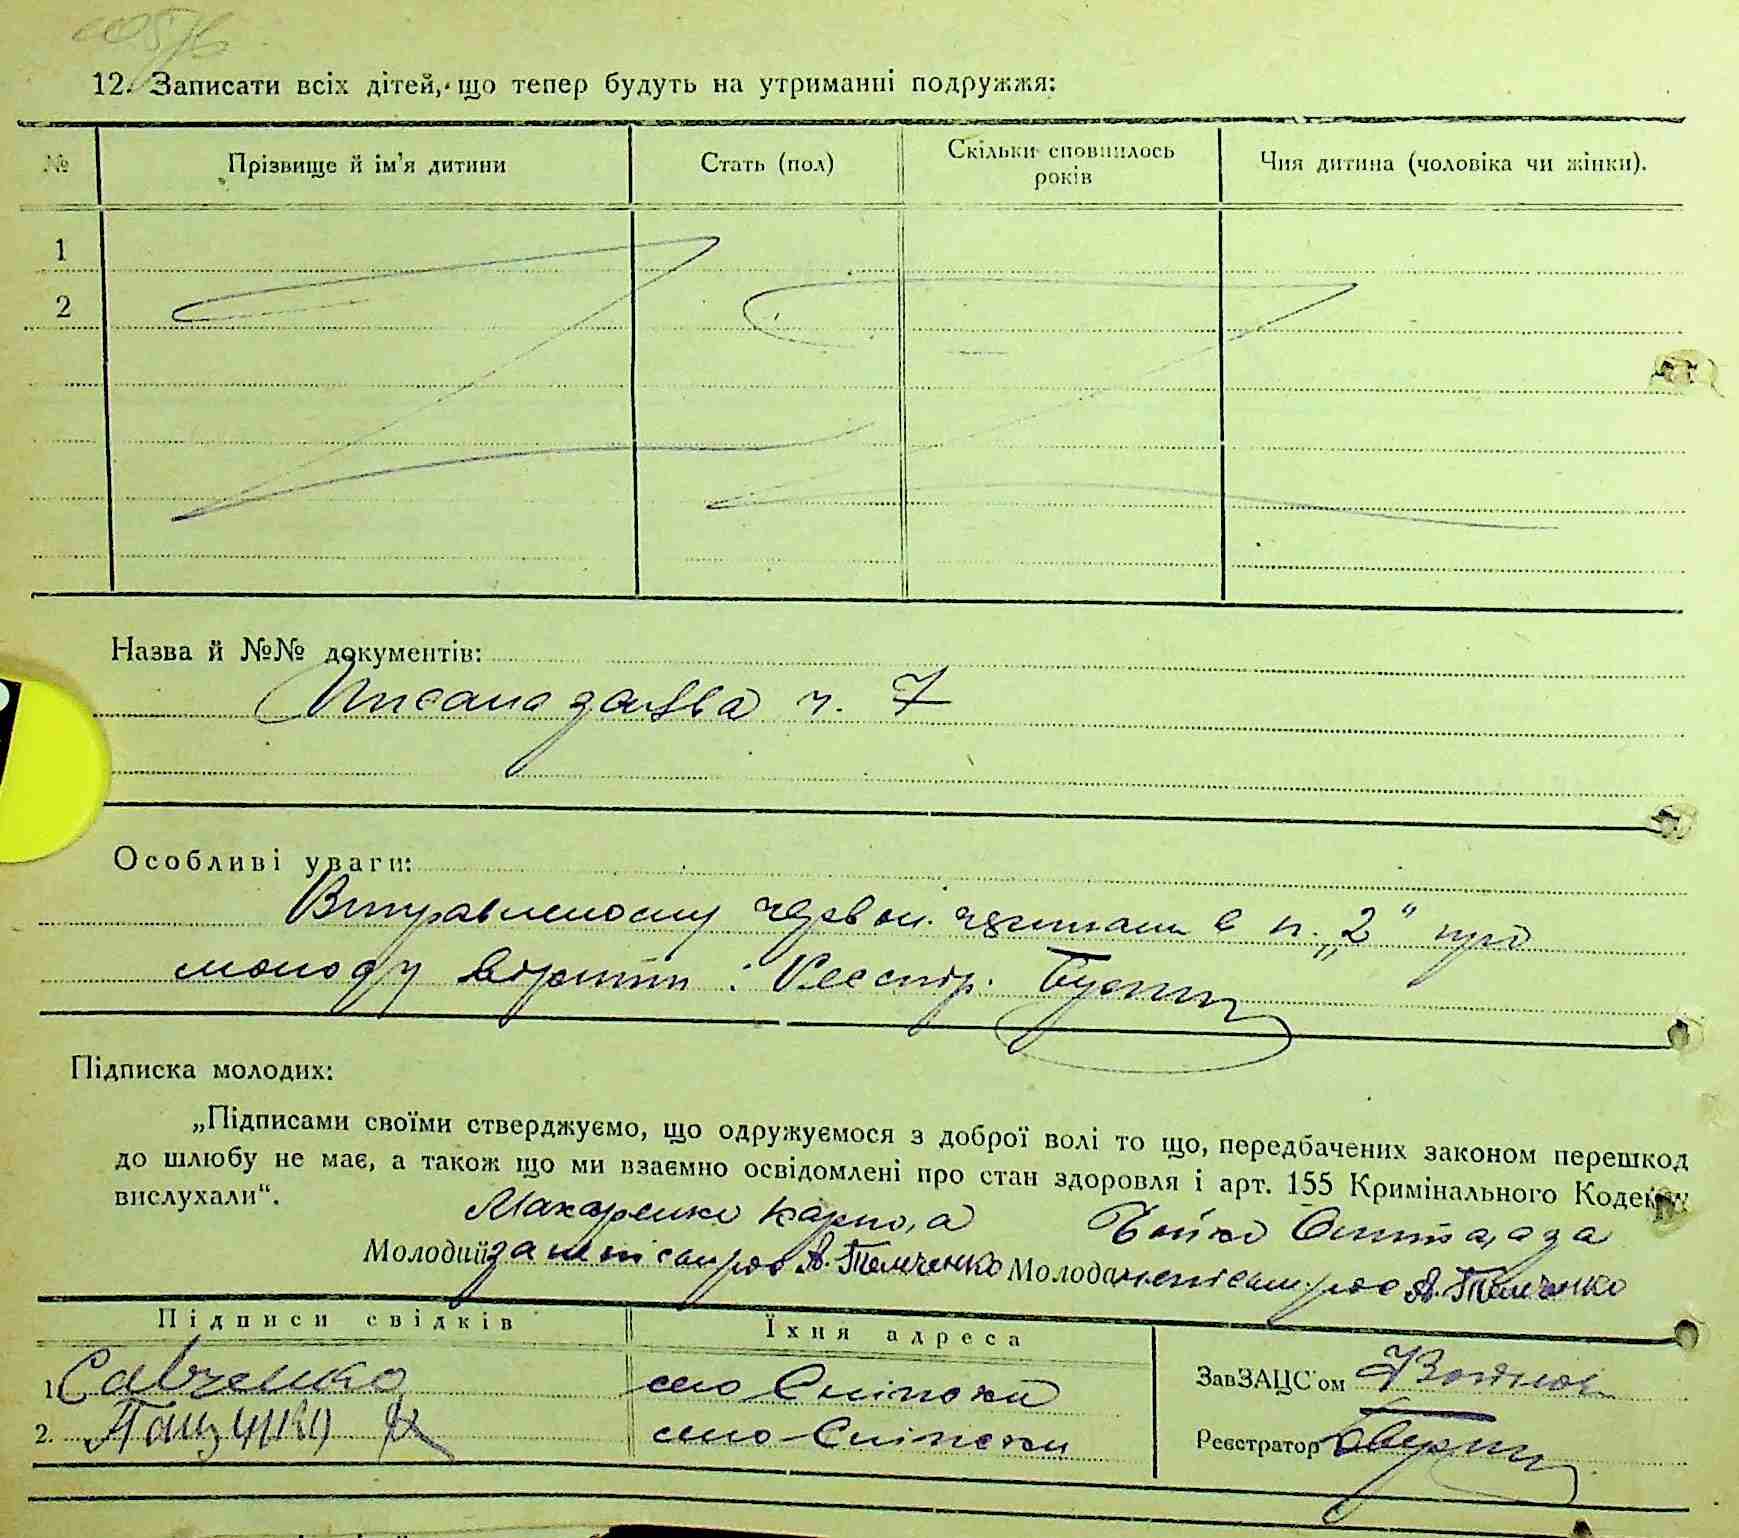 12. Записати всіх дітей, що тепер будуть на утриманні подружжя:
№ Прізвище й ім'я дитини Стать (пол) Скільки сповнилось років Чия дитина (чоловіка чи жінки).
1
2
Назва й №№ документів:
Писана заява ч. 7
Особливі уваги:
Виправленому червон. чорнилом в п. „2“ про
молоду вірити: Реєстр.
Підписка молодих:
„Підписами своїми стверджуємо, що одружуємося з доброї волі то що, передбачених законом перешкод
до шлюбу не має, а також що ми взаємно освідомлені про стан здоровля і арт. 155 Кримінального Кодексу
вислухали“.
Макаренко Карпо, а Бойко
Молодий за неписьмен. А. Темченко Молода А. Темченко
Підписи свідків Їхня адреса
1. Савченко село ЗавЗАЦС'ом
2. село Реєстратор